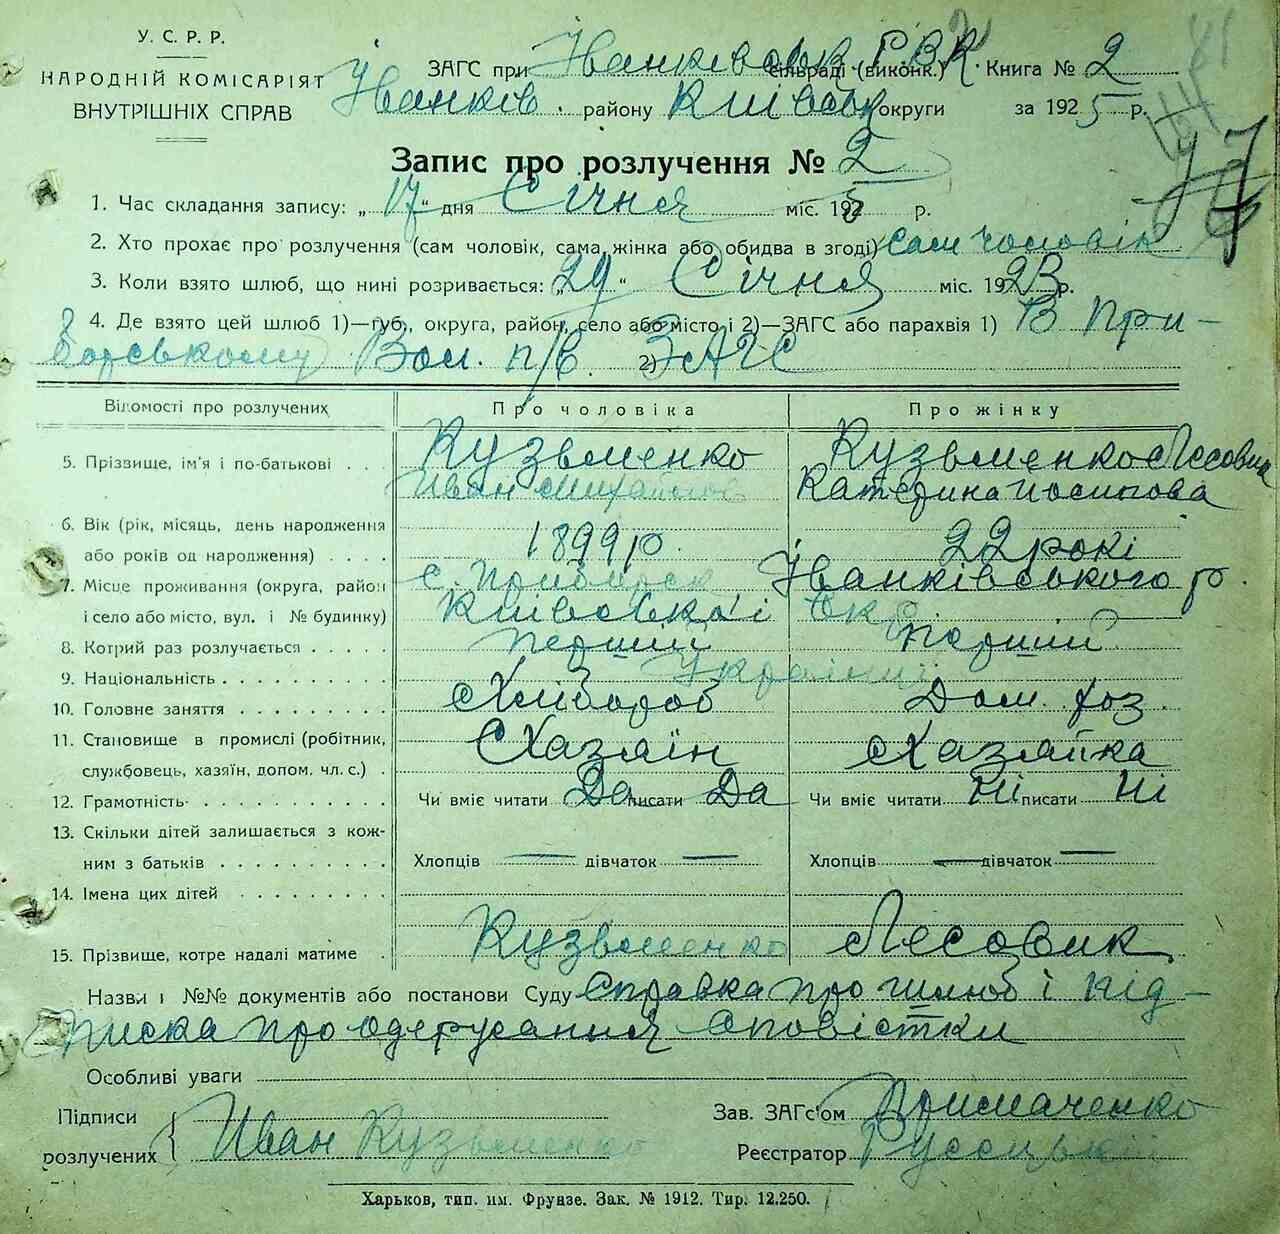 У. С. Р. Р.
НАРОДНІЙ КОМІСАРІЯТ
ВНУТРІШНІХ СПРАВ
ЗАГС при Іванківськ Р.В.К. сільраді (виконк.) Книга № 2
Іванків району Київськ округи за 1925 р.
Запис про розлучення № 2
1. Час складання запису: „17“ дня Січня міс. 1925 р.
2. Хто прохає про розлучення (сам чоловік, сама жінка або обидва в згоді) сам чоловік
3. Коли взято шлюб, що нині розривається: „29“ Січня міс. 1923 р.
4. Де взято цей шлюб 1)—губ., округа, район, село або місто і 2)—ЗАГС або парахвія 1) В При-
борському Вол. п/в. 2) ЗАГС
Відомості про розлучених Про чоловіка Про жінку
5. Прізвище, ім'я і по-батькові . . . Кузьменко Кузьменко Лесовик
Иван Михайлов Катерина Йосипова
6. Вік (рік, місяць, день народження
або років од народження) . . . . 1899 р. 22 рокі
7. Місце проживання (округа, район с. Приборск Іванківського р.
і село або місто, вул. і № будинку) Київської Окр
8. Котрий раз розлучається . . . . . перший перший
9. Національність . . . . . . . . . . Українці
10. Головне заняття . . . . . . . . . Хлібороб Дом. хоз.
11. Становище в промислі (робітник,
службовець, хазяїн, допом. чл. с.) . Хазяїн Хазяйка
12. Грамотність . . . . . . . . . . . Чи вміє читати Да писати Да Чи вміє читати Ні писати Ні
13. Скільки дітей залишається з кож-
ним з батьків . . . . . . . . . . Хлопців — дівчаток — Хлопців — дівчаток —
14. Імена цих дітей . . . . . . . . .
15. Прізвище, котре надалі матиме . Кузьменко Лесовик
Назви і №№ документів або постанови Суду Справка про шлюб і під-
писка про одерусання оповістки
Особливі уваги
Підписи Зав. ЗАГс'ом Примаченко
розлучених Иван Кузьменко Реєстратор
Харьков, тип. им. Фрунзе. Зак. № 1912. Тир. 12.250.